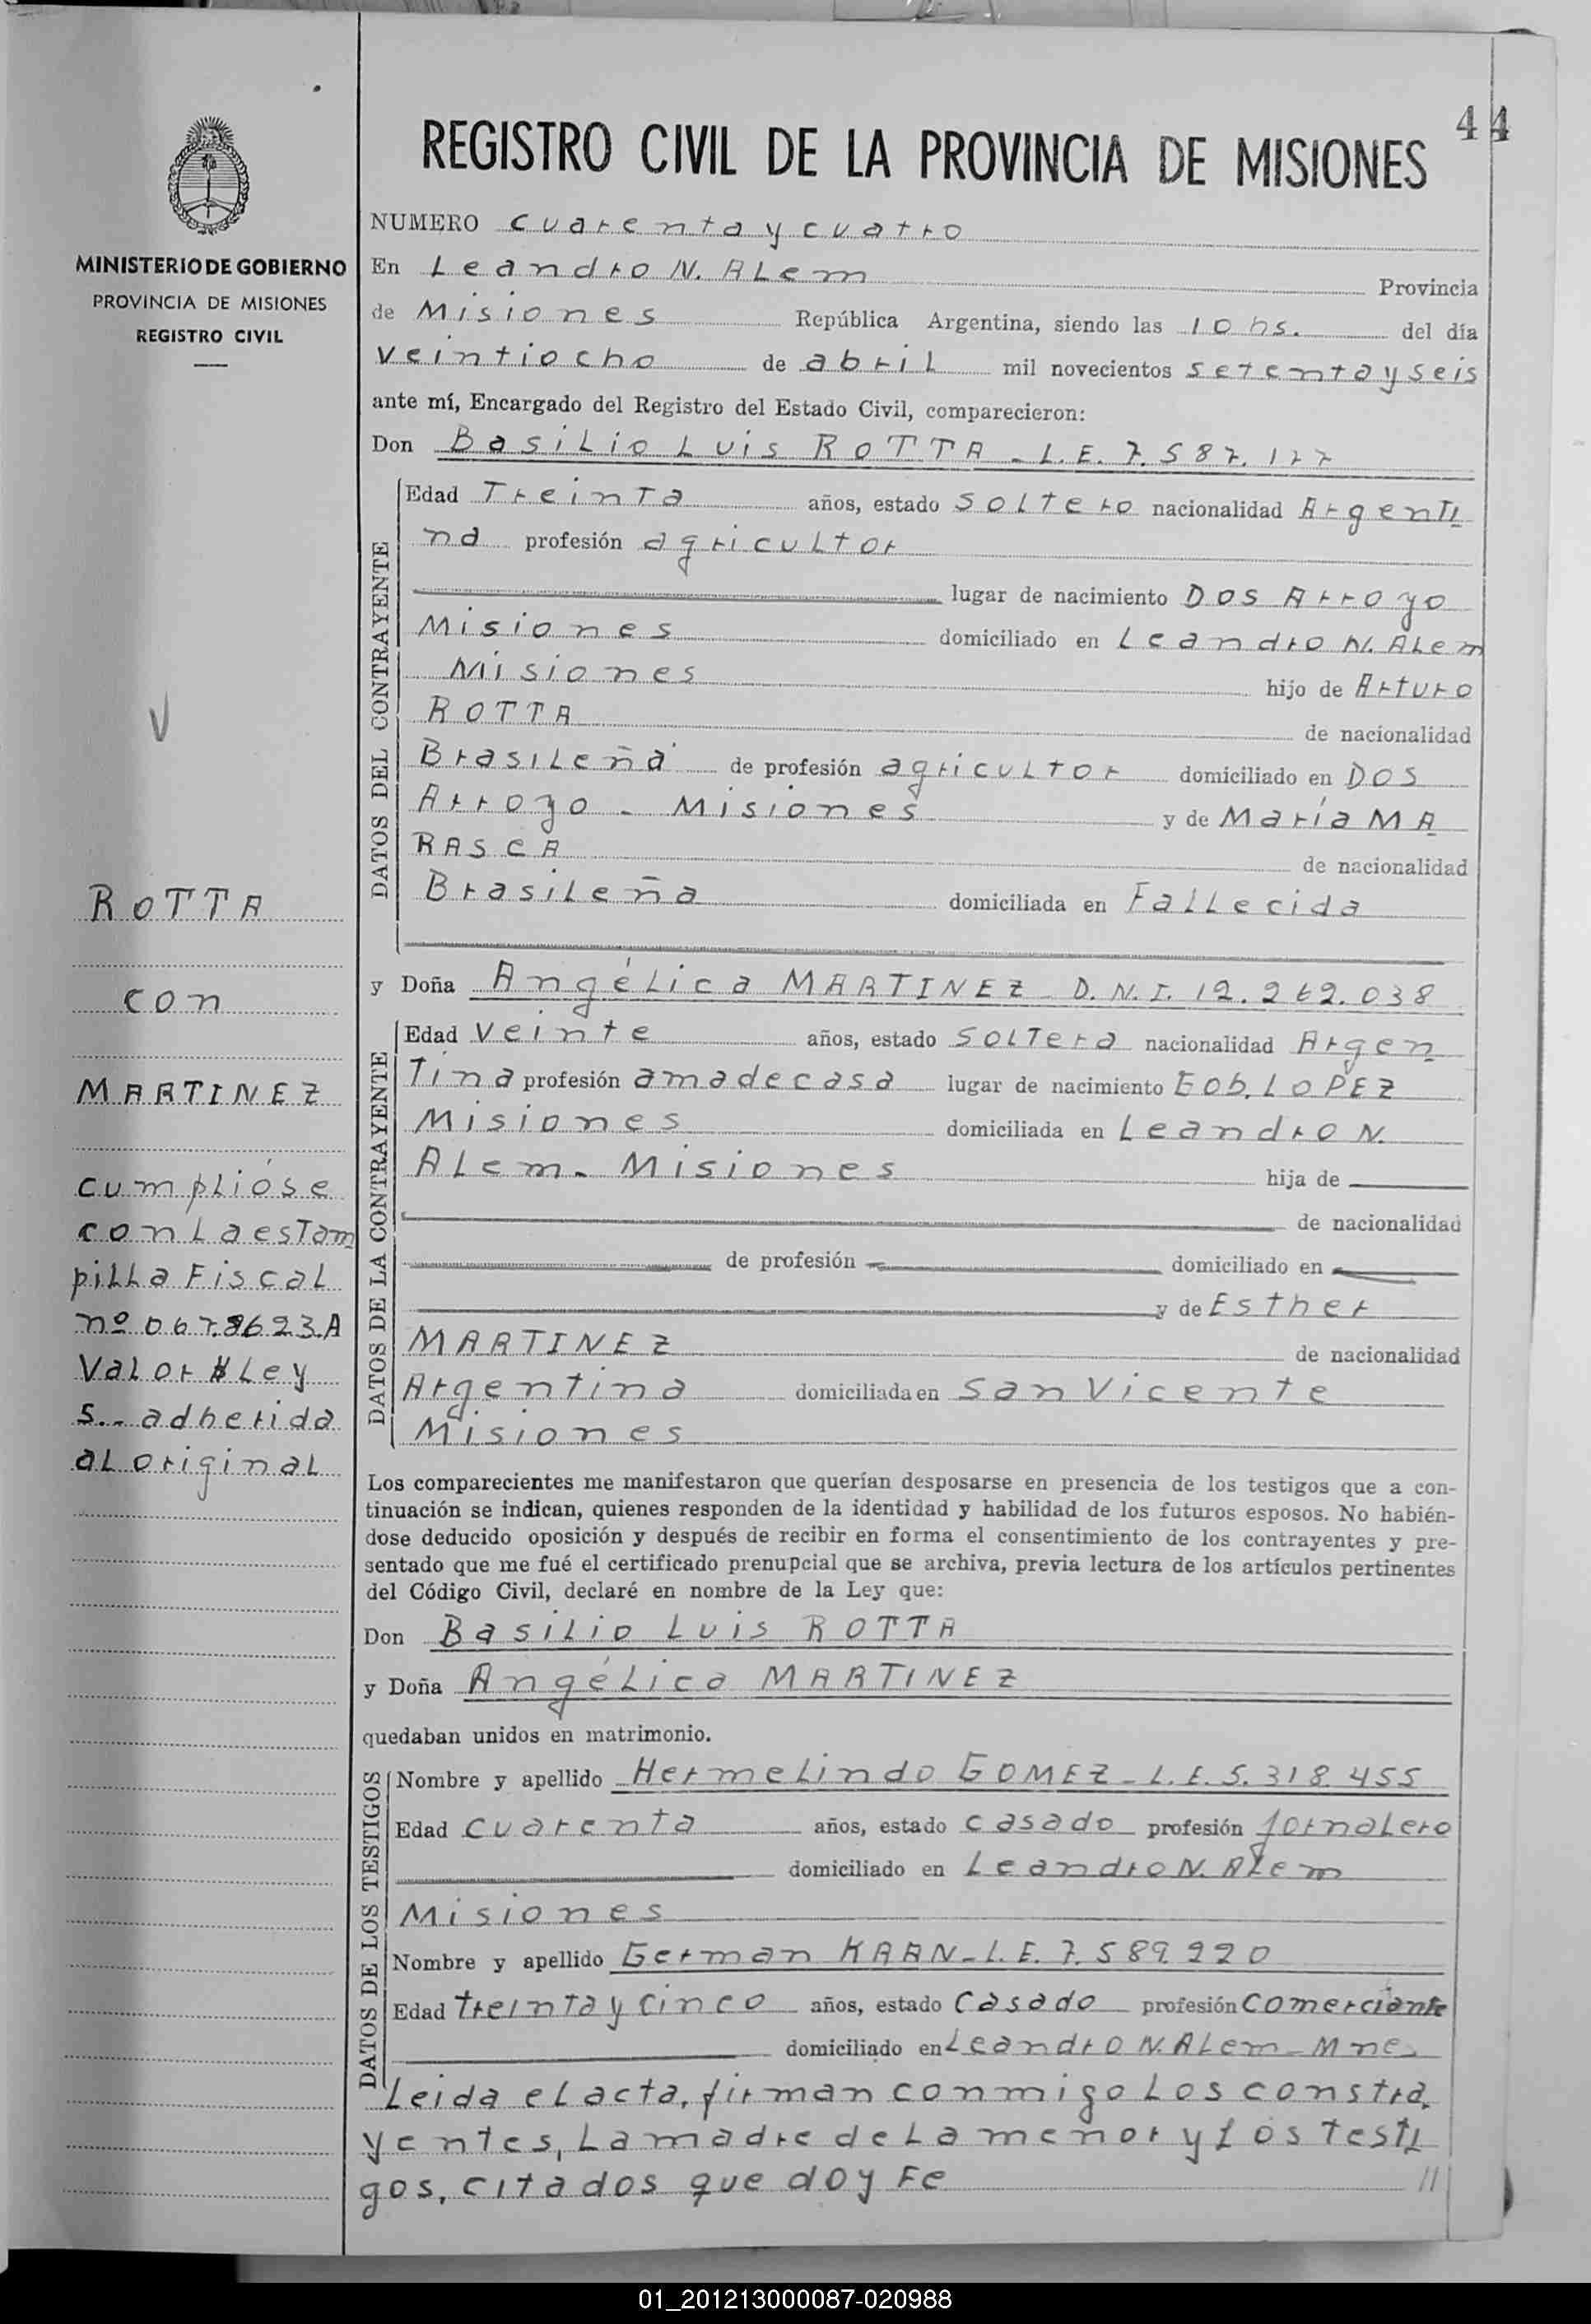 44
REGISTRO CIVIL DE LA PROVINCIA DE MISIONES
MINISTERIO DE GOBIERNO
PROVINCIA DE MISIONES
REGISTRO CIVIL
ROTTA
con
MARTINEZ
cumplióse
con La estam
pilla Fiscal
nº 067.8623.A
Valor $ Ley
5.- adherida
al original
NUMERO cuarenta y cuatro
En Leandro N. Alem Provincia
de Misiones República Argentina, siendo las 10 hs. del día
veintiocho de abril mil novecientos setenta y seis
ante mí, Encargado del Registro del Estado Civil, comparecieron:
Don Basilio Luis ROTTA - L.E. 7.587.177
DATOS DEL CONTRAYENTE
Edad Treinta años, estado soltero nacionalidad Argenti
na profesión agricultor
lugar de nacimiento Dos Arroyo
Misiones domiciliado en Leandro N. Alem
Misiones hijo de Arturo
ROTTA de nacionalidad
Brasileña de profesión agricultor domiciliado en Dos
Arroyo - Misiones y de María MA
RASCA de nacionalidad
Brasileña domiciliada en Fallecida
y Doña Angélica MARTINEZ - D.N.I. 12.262.038
DATOS DE LA CONTRAYENTE
Edad veinte años, estado soltera nacionalidad Argen
tina profesión ama de casa lugar de nacimiento Gob. LOPEZ
Misiones domiciliada en Leandro N.
Alem - Misiones hija de
de nacionalidad
de profesión domiciliado en
y de Esther
MARTINEZ de nacionalidad
Argentina domiciliada en San Vicente
Misiones
Los comparecientes me manifestaron que querían desposarse en presencia de los testigos que a con-
tinuación se indican, quienes responden de la identidad y habilidad de los futuros esposos. No habién-
dose deducido oposición y después de recibir en forma el consentimiento de los contrayentes y pre-
sentado que me fué el certificado prenupcial que se archiva, previa lectura de los artículos pertinentes
del Código Civil, declaré en nombre de la Ley que:
Don Basilio Luis ROTTA
y Doña Angélica MARTINEZ
quedaban unidos en matrimonio.
DATOS DE LOS TESTIGOS
Nombre y apellido Hermelindo GOMEZ - L.E. 5.318.455
Edad cuarenta años, estado casado profesión jornalero
domiciliado en Leandro N. Alem
Misiones
Nombre y apellido German KAAN - L.E. 7.589.220
Edad treinta y cinco años, estado casado profesión comerciante
domiciliado en Leandro N. Alem - Mnes
Leida el acta, firman conmigo los constra.
yentes, la madre de la menor y los testi
gos, citados que doy Fe //
01_201213000087-020988